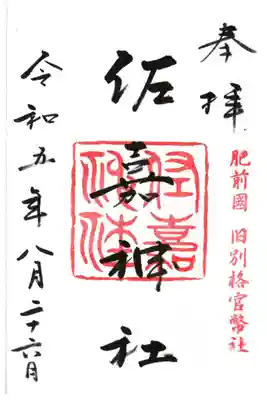 奉拝
肥前國 旧別格官幣社
佐嘉神社
令和五年八月二十六日